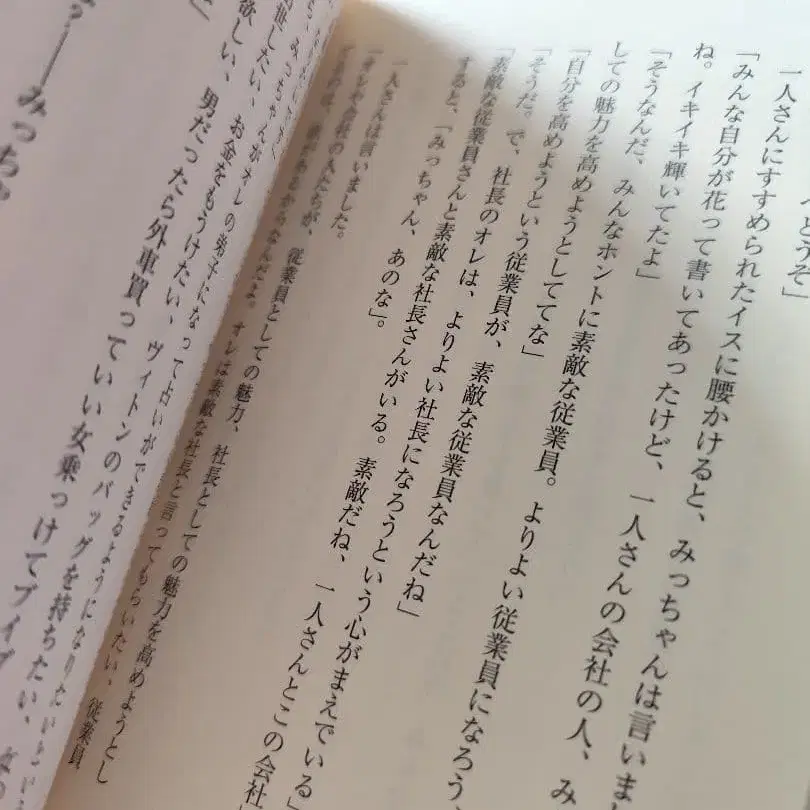 とうぞ」
一人さんにすすめられたイスに腰かけると、みっちゃんは言いま
「みんな自分が花って書いてあったけど、一人さんの会社の人、み
ね。イキイキ輝いてたよ」
「そうなんだ、みんなホントに素敵な従業員。よりよい従業員になろう、
しての魅力を高めようとしててな」
「自分を高めようという従業員が、素敵な従業員なんだね」
「そうだ。で、社長のオレは、よりよい社長になろうという心がまえでいる」
「素敵な従業員さんと素敵な社長さんがいる。素敵だね、一人さんとこの会社
すると、「みっちゃん、あのな」。
一人さんは言いました。
「オレや会社の人たちが、従業員としての魅力、社長としての魅力を高めようとし
があるからなんだよ。オレは素敵な社長と言ってもらいたい、従業員
みっちゃんがオレの弟子になって占いができるようになりたい
世したい、お金をもうけたい、ヴィトンのバッグを持ちたい、
欲しい、男だったら外車買っていい女乗っけてブイブ
──みっちゃ